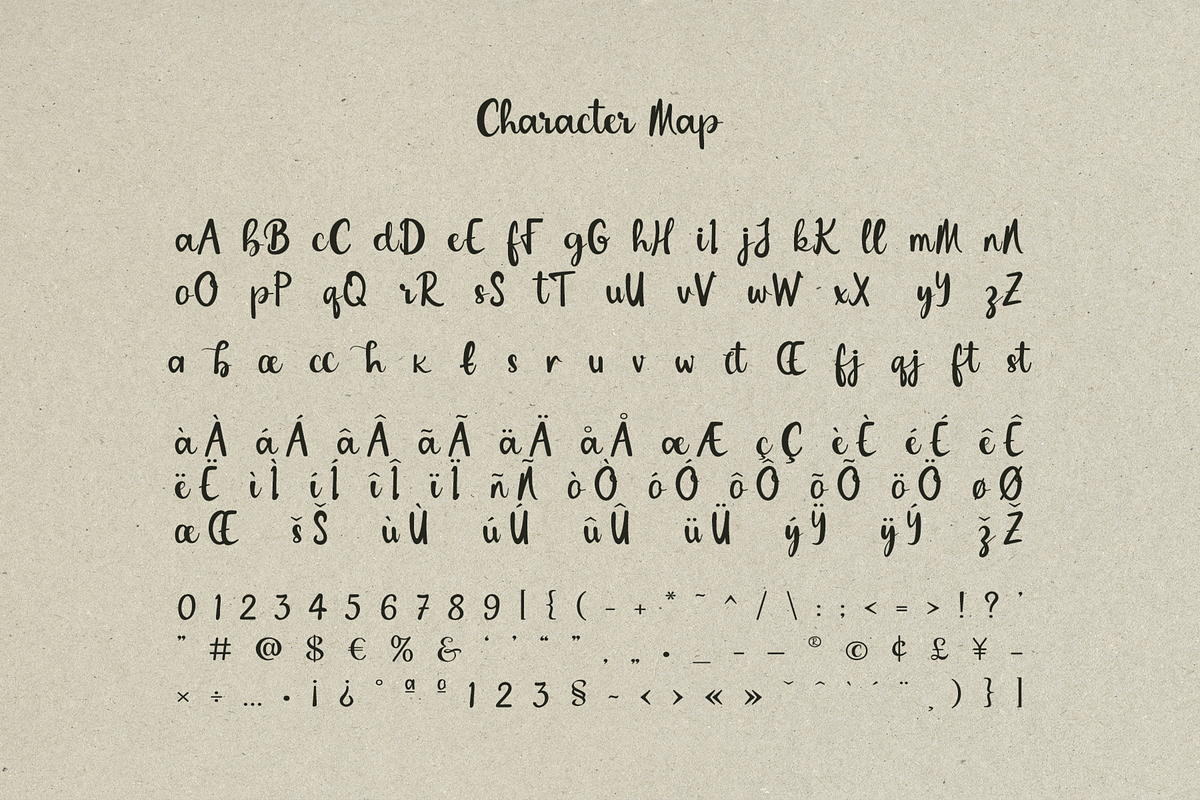 Character Map
aA bB cC dD eE fF gG hH iI jJ kK lL mM nN
oO pP qQ rR sS tT uU vV wW xX yY zZ
a b œ cc h k ł s r u v w ct Œ fj qj ft st
àÀ áÁ âÂ ãÃ äÄ åÅ æÆ çÇ èÈ éÉ êÊ
ëË ìÌ íÍ îÎ ïÏ ñÑ òÒ óÓ ôÔ õÕ öÖ øØ
œŒ šŠ ùÙ úÚ ûÛ üÜ ýŸ ÿÝ žŽ
0 1 2 3 4 5 6 7 8 9 [ { ( - + * ~ ^ / \ : ; < = > ! ? '
" # @ $ € % & ‘ ’ “ ” ‚ „ • _ – — ® © ¢ £ ¥ -
× ÷ … • ¡ ¿ ° ª º 1 2 3 § ~ ‹ › « » ˘ ˆ ` ´ ¨ ¸ ) } ]